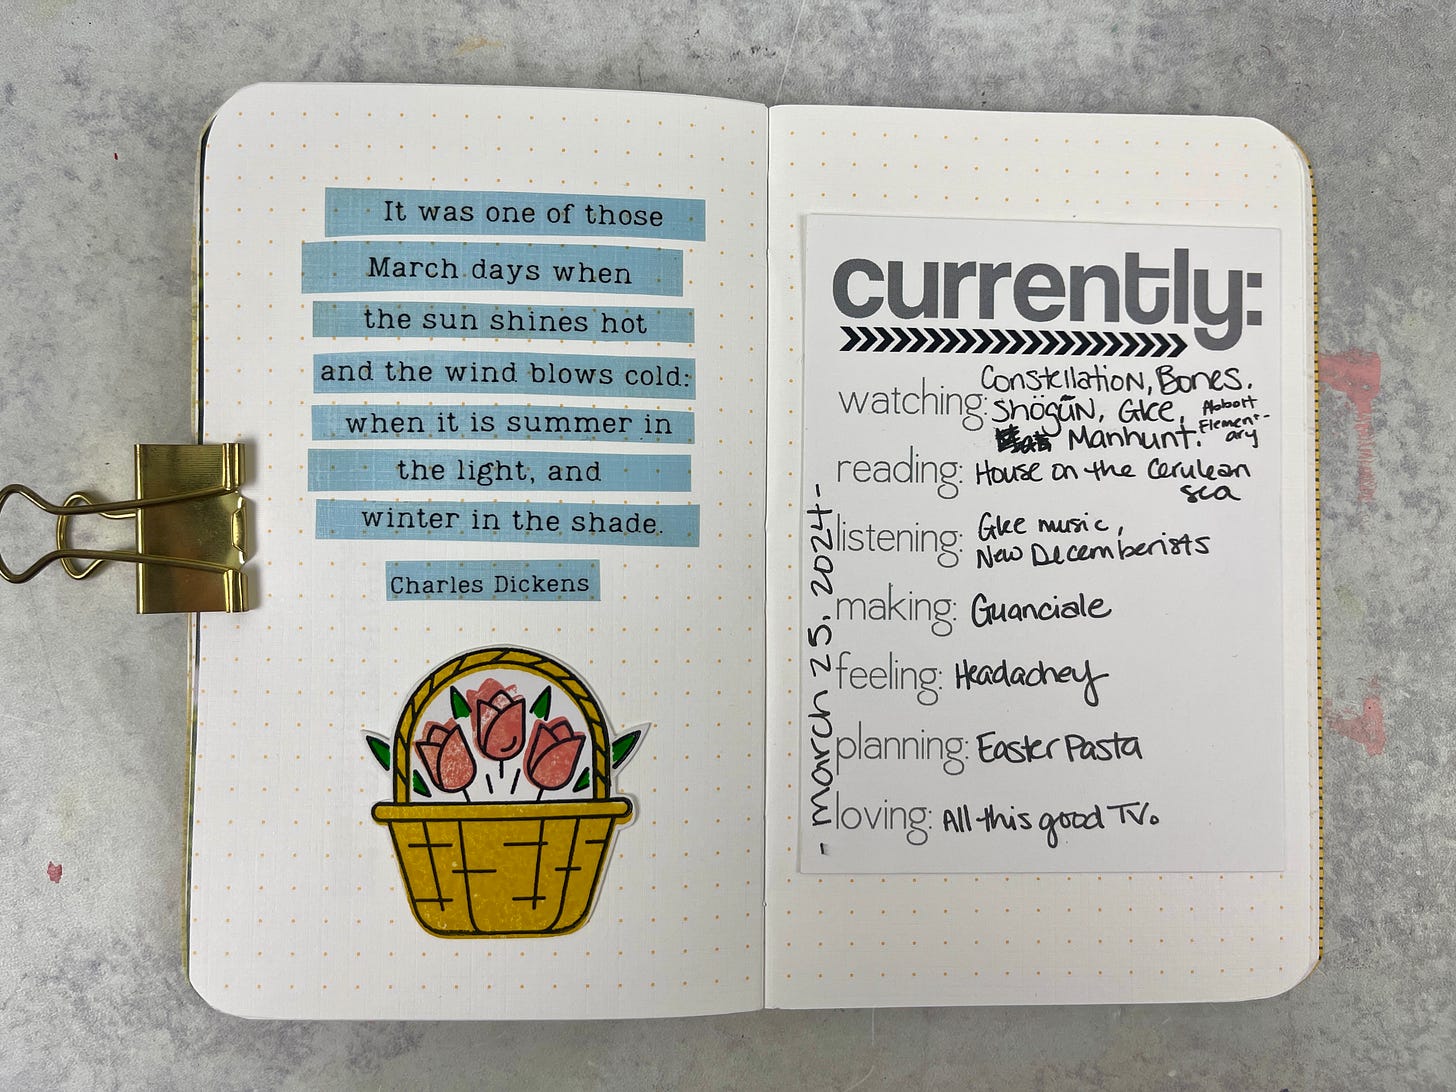 It was one of those
March days when
the sun shines hot
and the wind blows cold:
when it is summer in
the light, and
winter in the shade.
Charles Dickens
currently:
watching: Constellation, Bones.
Shōgūn, Glee, Abbott
Manhunt. Element-
ary
reading: House on the Cerulean
sea
listening: Glee music,
New Decemberists
making: Guanciale
feeling: Headachey
planning: Easter Pasta
loving: All this good TV.
- march 25, 2024 -